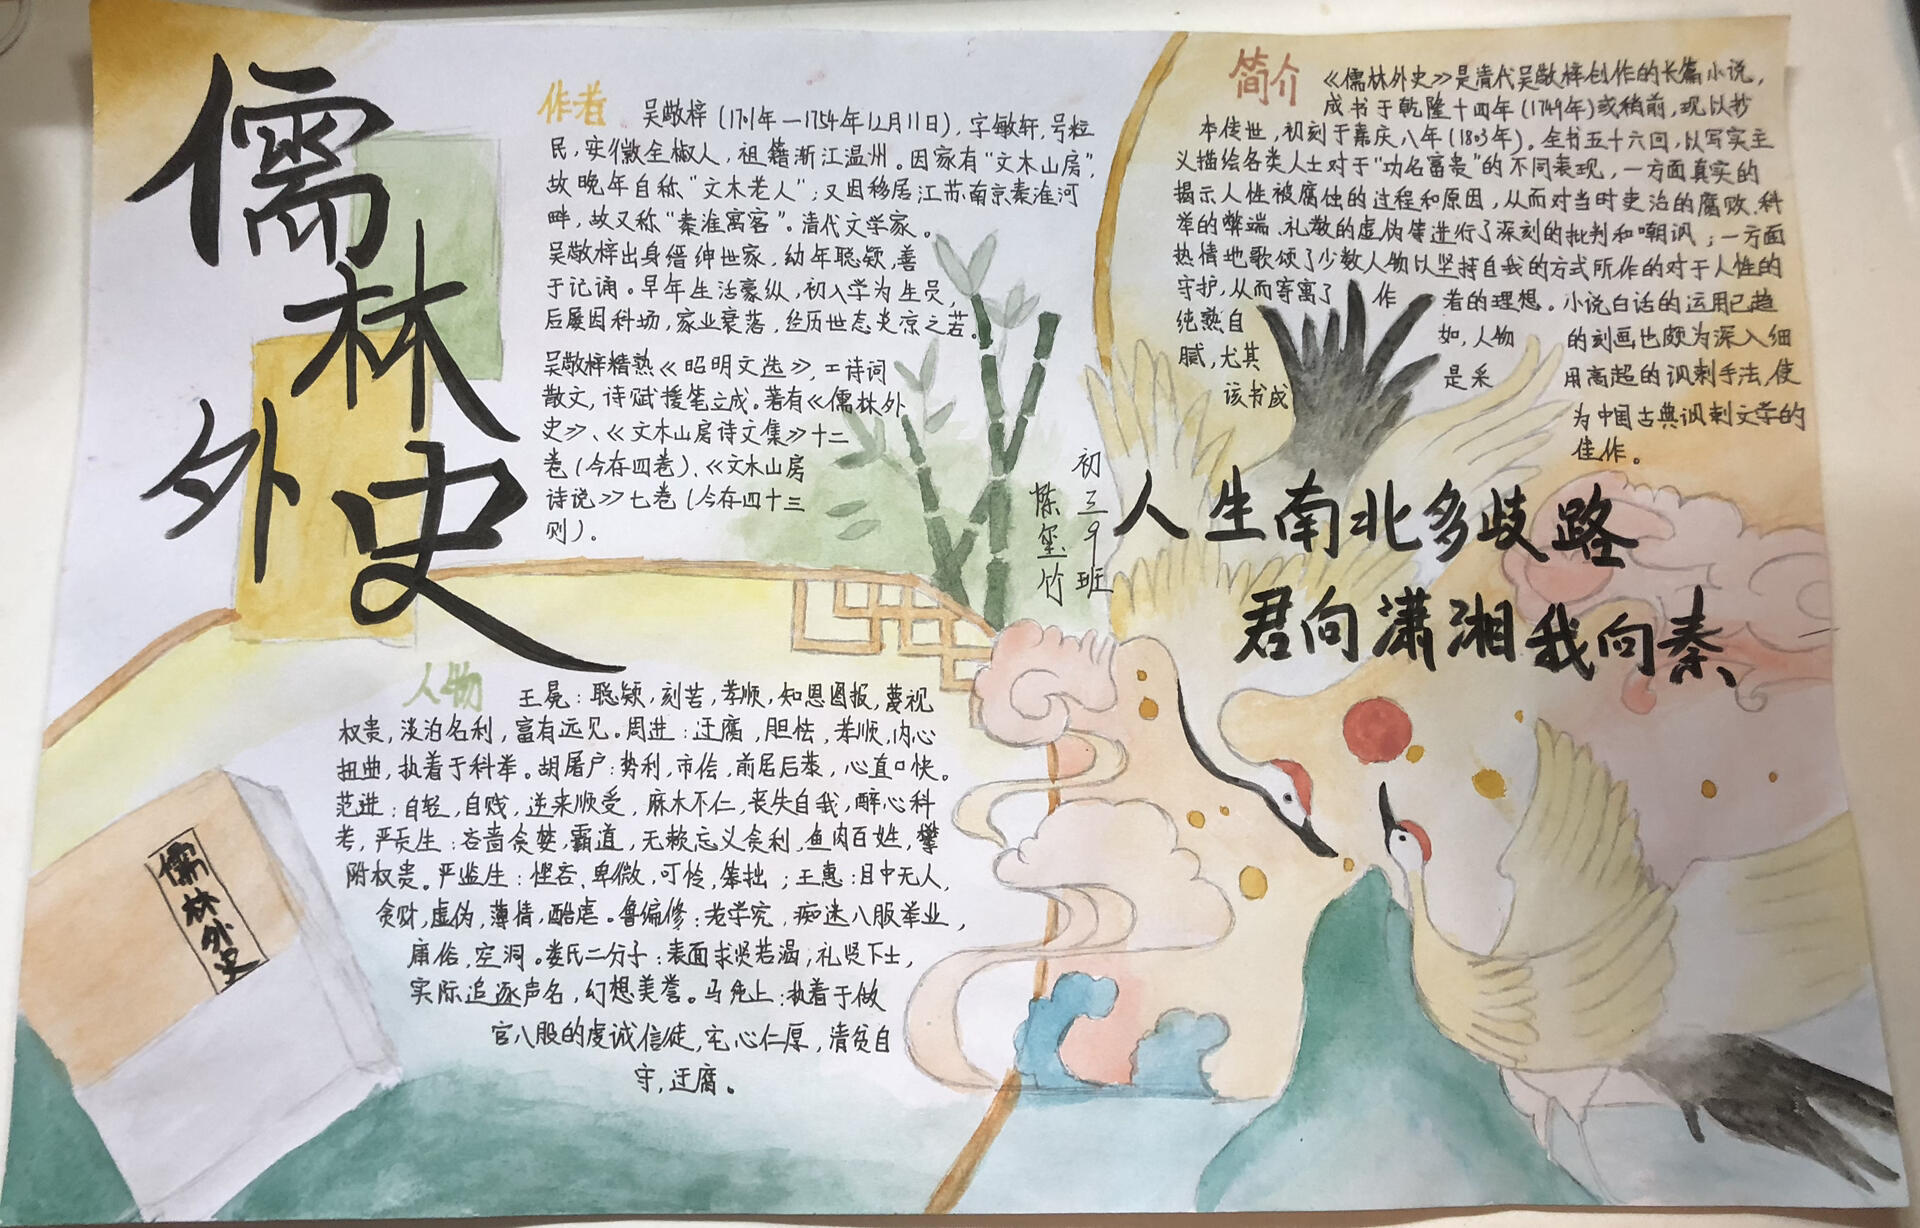 儒林外史
作者
吴敬梓(1701年—1754年12月11日),字敏轩,号粒
民,安徽全椒人,祖籍浙江温州。因家有“文木山房”,
故晚年自称“文木老人”;又因移居江苏南京秦淮河
畔,故又称“秦淮寓客”。清代文学家。
吴敬梓出身缙绅世家,幼年聪颖,善
于记诵。早年生活豪纵,初入学为生员,
后屡困科场,家业衰落,经历世态炎凉之苦。
吴敬梓精熟《昭明文选》,工诗词
散文,诗赋援笔立成。著有《儒林外
史》、《文木山房诗文集》十二
卷(今存四卷)、《文木山房
诗说》七卷(今存四十三
则)。
初三9班
陈玺竹
简介
《儒林外史》是清代吴敬梓创作的长篇小说,
成书于乾隆十四年(1749年)或稍前,现以抄
本传世,初刻于嘉庆八年(1803年)。全书五十六回,以写实主
义描绘各类人士对于“功名富贵”的不同表现,一方面真实的
揭示人性被腐蚀的过程和原因,从而对当时吏治的腐败、科
举的弊端、礼教的虚伪等进行了深刻的批判和嘲讽;一方面
热情地歌颂了少数人物以坚持自我的方式所作的对于人性的
守护,从而寄寓了作者的理想。小说白话的运用已趋
纯熟自如,人物的刻画也颇为深入细
腻,尤其是采用高超的讽刺手法,使
该书成为中国古典讽刺文学的
佳作。
人生南北多歧路
君向潇湘我向秦
人物
王冕:聪颖,刻苦,孝顺,知恩图报,蔑视
权贵,淡泊名利,富有远见。周进:迂腐,胆怯,孝顺,内心
扭曲,执着于科举。胡屠户:势利,市侩,前居后恭,心直口快。
范进:自轻,自贱,逆来顺受,麻木不仁,丧失自我,醉心科
考,严贡生:吝啬贪婪,霸道,无赖忘义贪利,鱼肉百姓,攀
附权贵。严监生:悭吝、卑微,可怜,笨拙;王惠:目中无人,
贪财,虚伪,薄情,酷虐。鲁编修:老学究,痴迷八股举业,
庸俗,空洞。娄氏二公子:表面求贤若渴;礼贤下士,
实际追逐声名,幻想美誉。马纯上:执着于做
官八股的虔诚信徒,宅心仁厚,清贫自
守,迂腐。
儒林外史